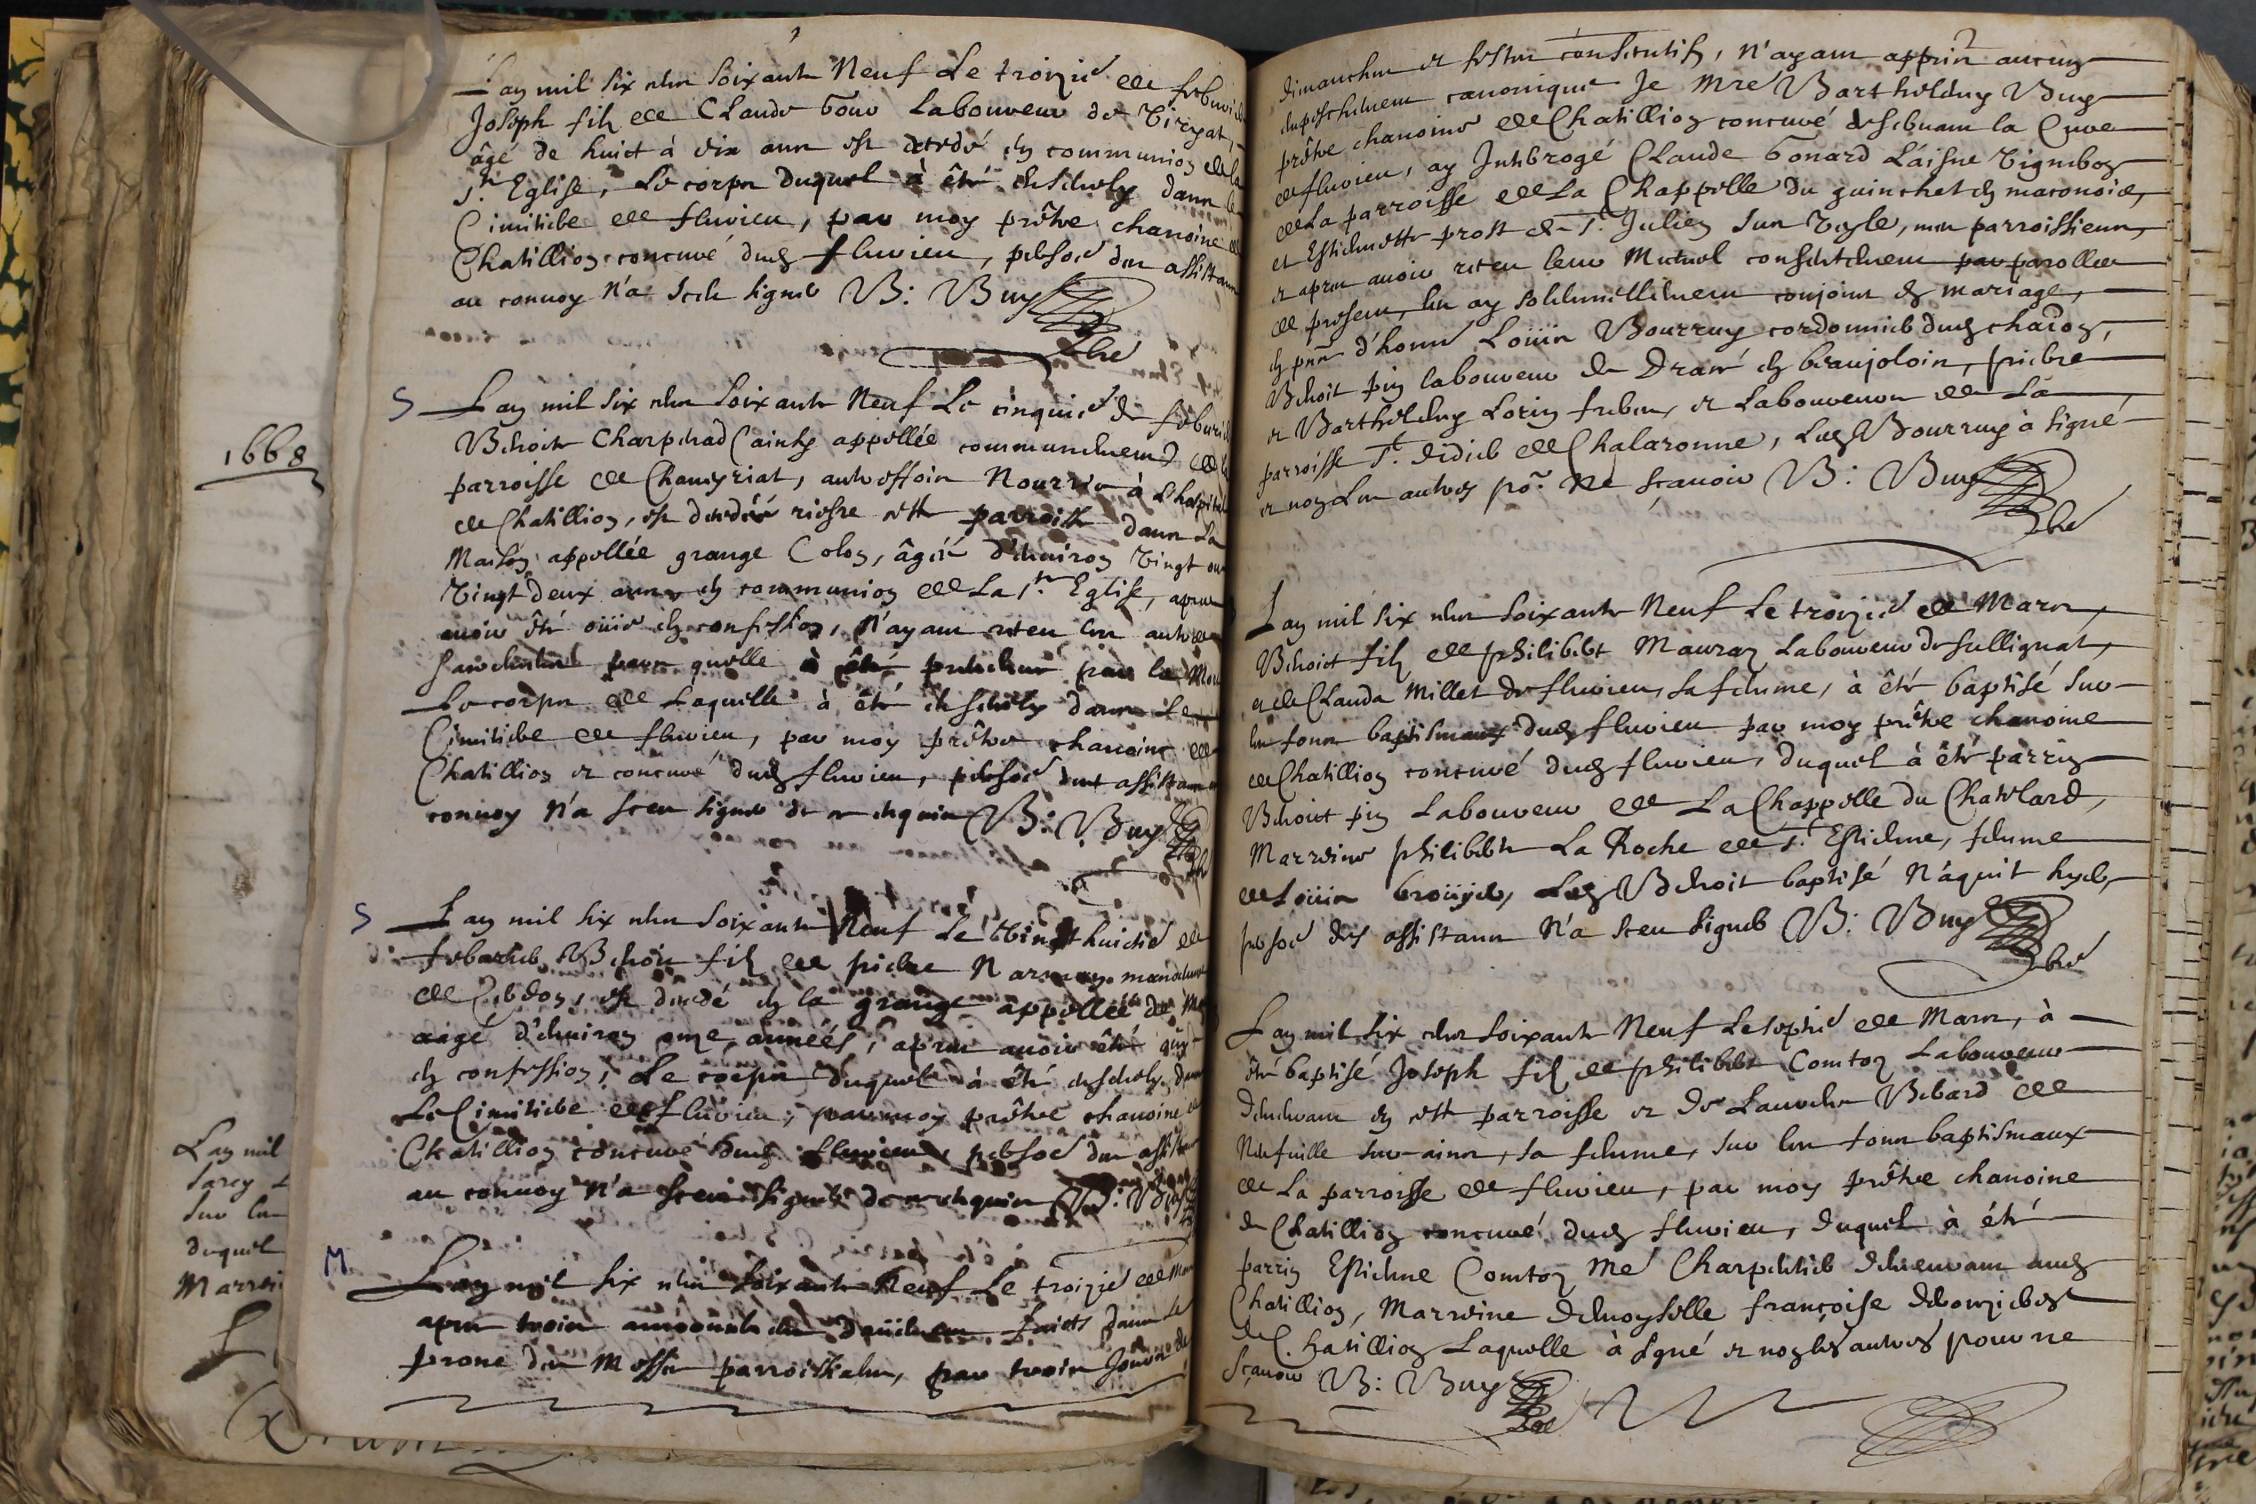 1668
Lan mil
sur les
duquel
Marrei
Lan mil six cens soixante Neuf Le troizie de febvrie
Joseph filz de Claude Laboureur de
âgé de huict à dix ans est decedé en communion de la
Ste Eglise, Le corps duquel à êté ensevely dans le
Cimitiere de fluvieu, par moy prêtre chanoine de
Chatillion concuré dud fluvieu, persoe des assistans
au convoy n'a sceu signer B: Buy
pbre
S Lan mil six cens soixante Neuf Le cinquie de febvrie
Benoite appellée communement de la
parroisse de Chaneyriat, autrefois Nourrie à L'hospital
de Chatillion, est decedée riesre cette parroisse dans La
Maison appellée grange Colon, âgée d'environ vingt ou
vingt deux ans en communion de La Ste Eglise, apres
avoir êté ouïe en confession, n'ayant receu les autres
sacremens parce quelle à êté prevenue par la Mor
Le corps de Laquelle à êté ensevely dans Le
Cimitiere de fluvieu, par moy prêtre chanoine de
Chatillion et concuré dud fluvieu, persoe des assistans au
convoy n'a sceu signer de ce enquis B: Buy
pb
S Lan mil six cens soixante Neuf Le vingt huictie de
febvrier Benoit filz de pierre
de est decedé en la grange appellée de
aagé d'environ onze années, apres avoir êté ouy
en confession, Le corps duquel à êté ensevely dans
Le Cimitiere de fluvieu, par moy prêtre chanoine de
Chatillion concuré dud fluvieu, persoe des assistans
au convoy n'a sceu signer de ce enquis B: Buy
M Lan mil six cens soixante Neuf Le troizie de Mars
apres trois annoncies faicts dans le
prone des Messes parroissiales, par trois Jours de
dimanches et festes consecutifs, n'ayant appris aucun
empeschement canonique Je Mre Barthelemy Buy
prêtre chanoine de Chatillion concuré desservant la Cure
de fluvieu, ay Interrogé Claude Gonard L'aisne Vigneron
de La parroisse de La Chappelle du guinchet en maconois,
et Estiennette prost de St. Julien sur Veyle, mes parroissiens,
et apres avoir receu leur Mutuel consentement par parolles
de presens, les ay solemnellement conjoins en mariage,
en pnce d'honn Louis Bourruy cordonnier dud chaon,
Benoit pin laboureur de Dracé en beaujolois, pierre
et Barthelemy Lorin freres, et Laboureurs de La
parroisse St. didier de Chalaronne, Led Bourruy à signé
et non Les autres po. Ne sçavoir B: Buy
pbre
Lan mil six cens soixante Neuf Le troizie de Mars,
Benoict filz de philibert Mauran Laboureur de sullignat,
et de Clauda Millet de fluvieu, sa femme, à êté baptisé sur
les fonts baptismaux dud fluvieu par moy prêtre chanoine
de Chatillion concuré dud fluvieu, duquel à êté parrin
Benoict pin Laboureur de La Chappelle du Chatelard,
Marreine philiberte La Roche de St. Estienne, femme
de Louis led Benoit baptisé Náquit hyer,
persoe des assistans n'a sceu signer B: Buy
pbre
Lan mil six cens soixante Neuf Le septie de Mars, à
êté baptisé Joseph filz de philibert Comton Laboureur
demeurant en cette parroisse et de Laurence Bebard de
Neufville sur-ains, sa femme, sur les fonts baptismaux
de La parroisse de fluvieu, par moy prêtre chanoine
de Chatillion concuré dud fluvieu, duquel à êté
parrin Estienne Comton Me Charpentier demeurant aud
Chatillion, Marreine demoyselle françoise
de Chatillion Laquelle à signé et non les autres pour ne
sçavoir B: Buy
pbre